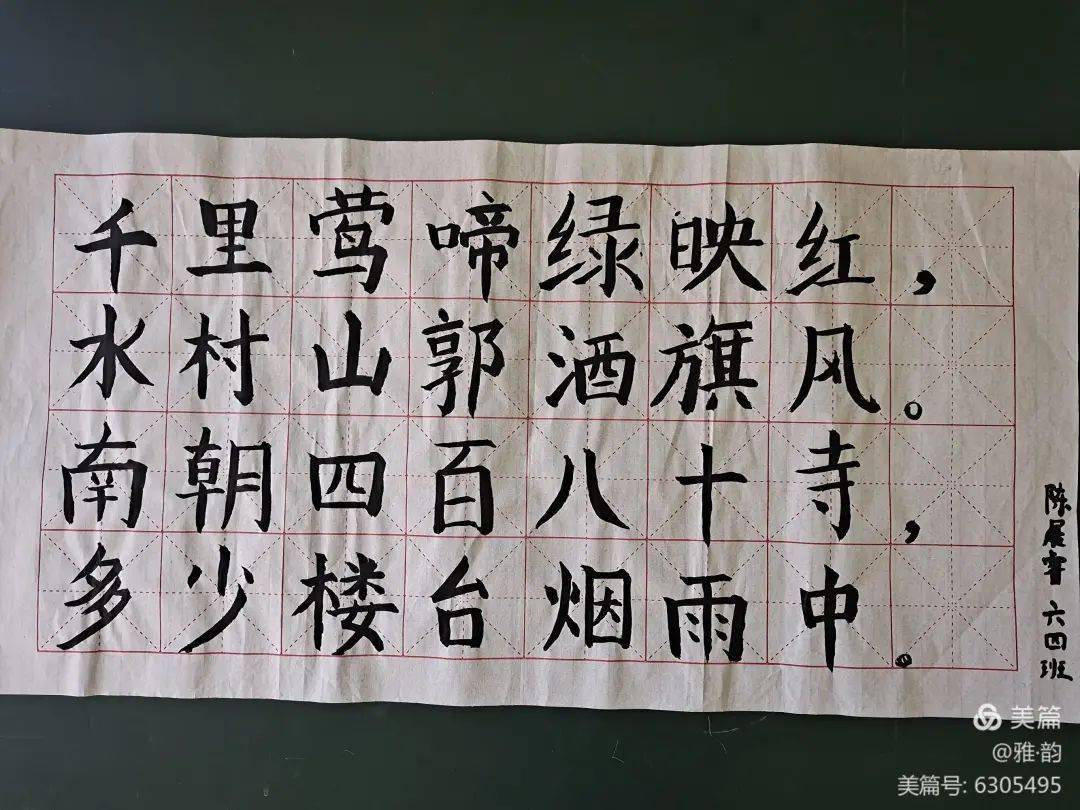 千里莺啼绿映红，
水村山郭酒旗风。
南朝四百八十寺，
多少楼台烟雨中。
陈展睿 六四班
美篇
@雅·韵
美篇号: 6305495